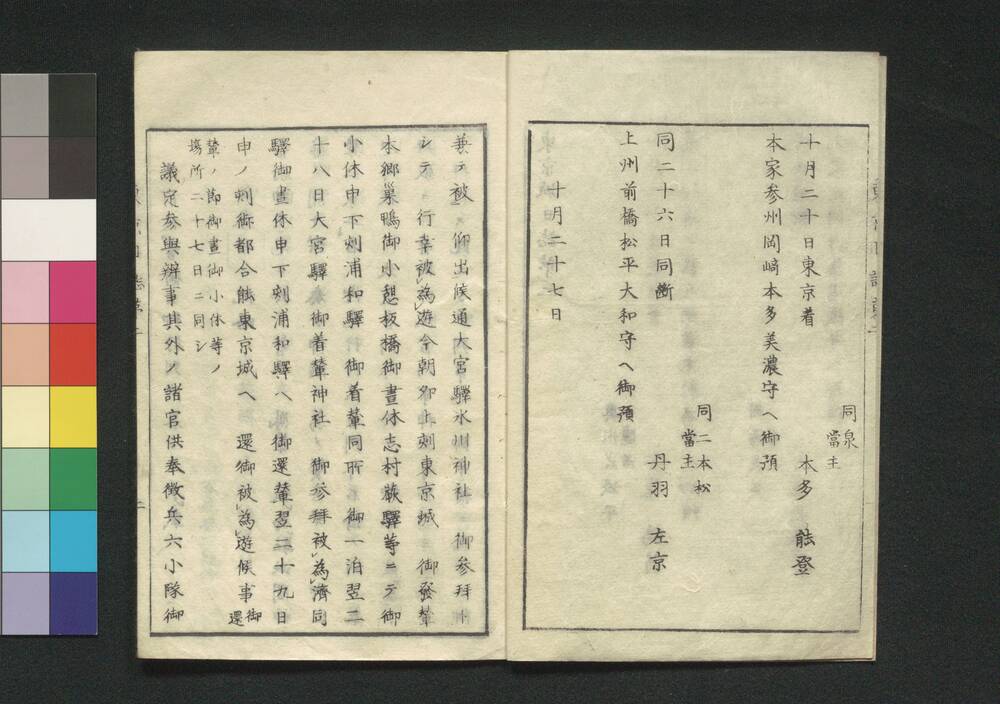 同泉
當主
本多 能登
十月二十日東京着
本家参州岡崎本多美濃守ヘ御預
同二本松
當主
丹羽 左京
同二十六日同断
上州前橋松平大和守ヘ御預
十月二十七日
兼テ被 仰出候通大宮驛氷川神社 御参拜トシテ 行幸被為遊今朝卯上刻東京城 御發輦
本郷巣鴨御小憩板橋御晝休志村蕨驛等ニテ御
小休申下刻浦和驛 御着輦同所 御一泊翌二
十八日大宮驛 御着輦神社 御参拜被為濟同
驛御晝休申下刻浦和驛ヘ 御還輦翌二十九日
申ノ刻御都合能東京城ヘ 還御被為遊候事 御還
輦ノ節御晝御小休等ノ
場所二十七日ニ同シ
議定参與辨事其外ノ諸官供奉徴兵六小隊御
二